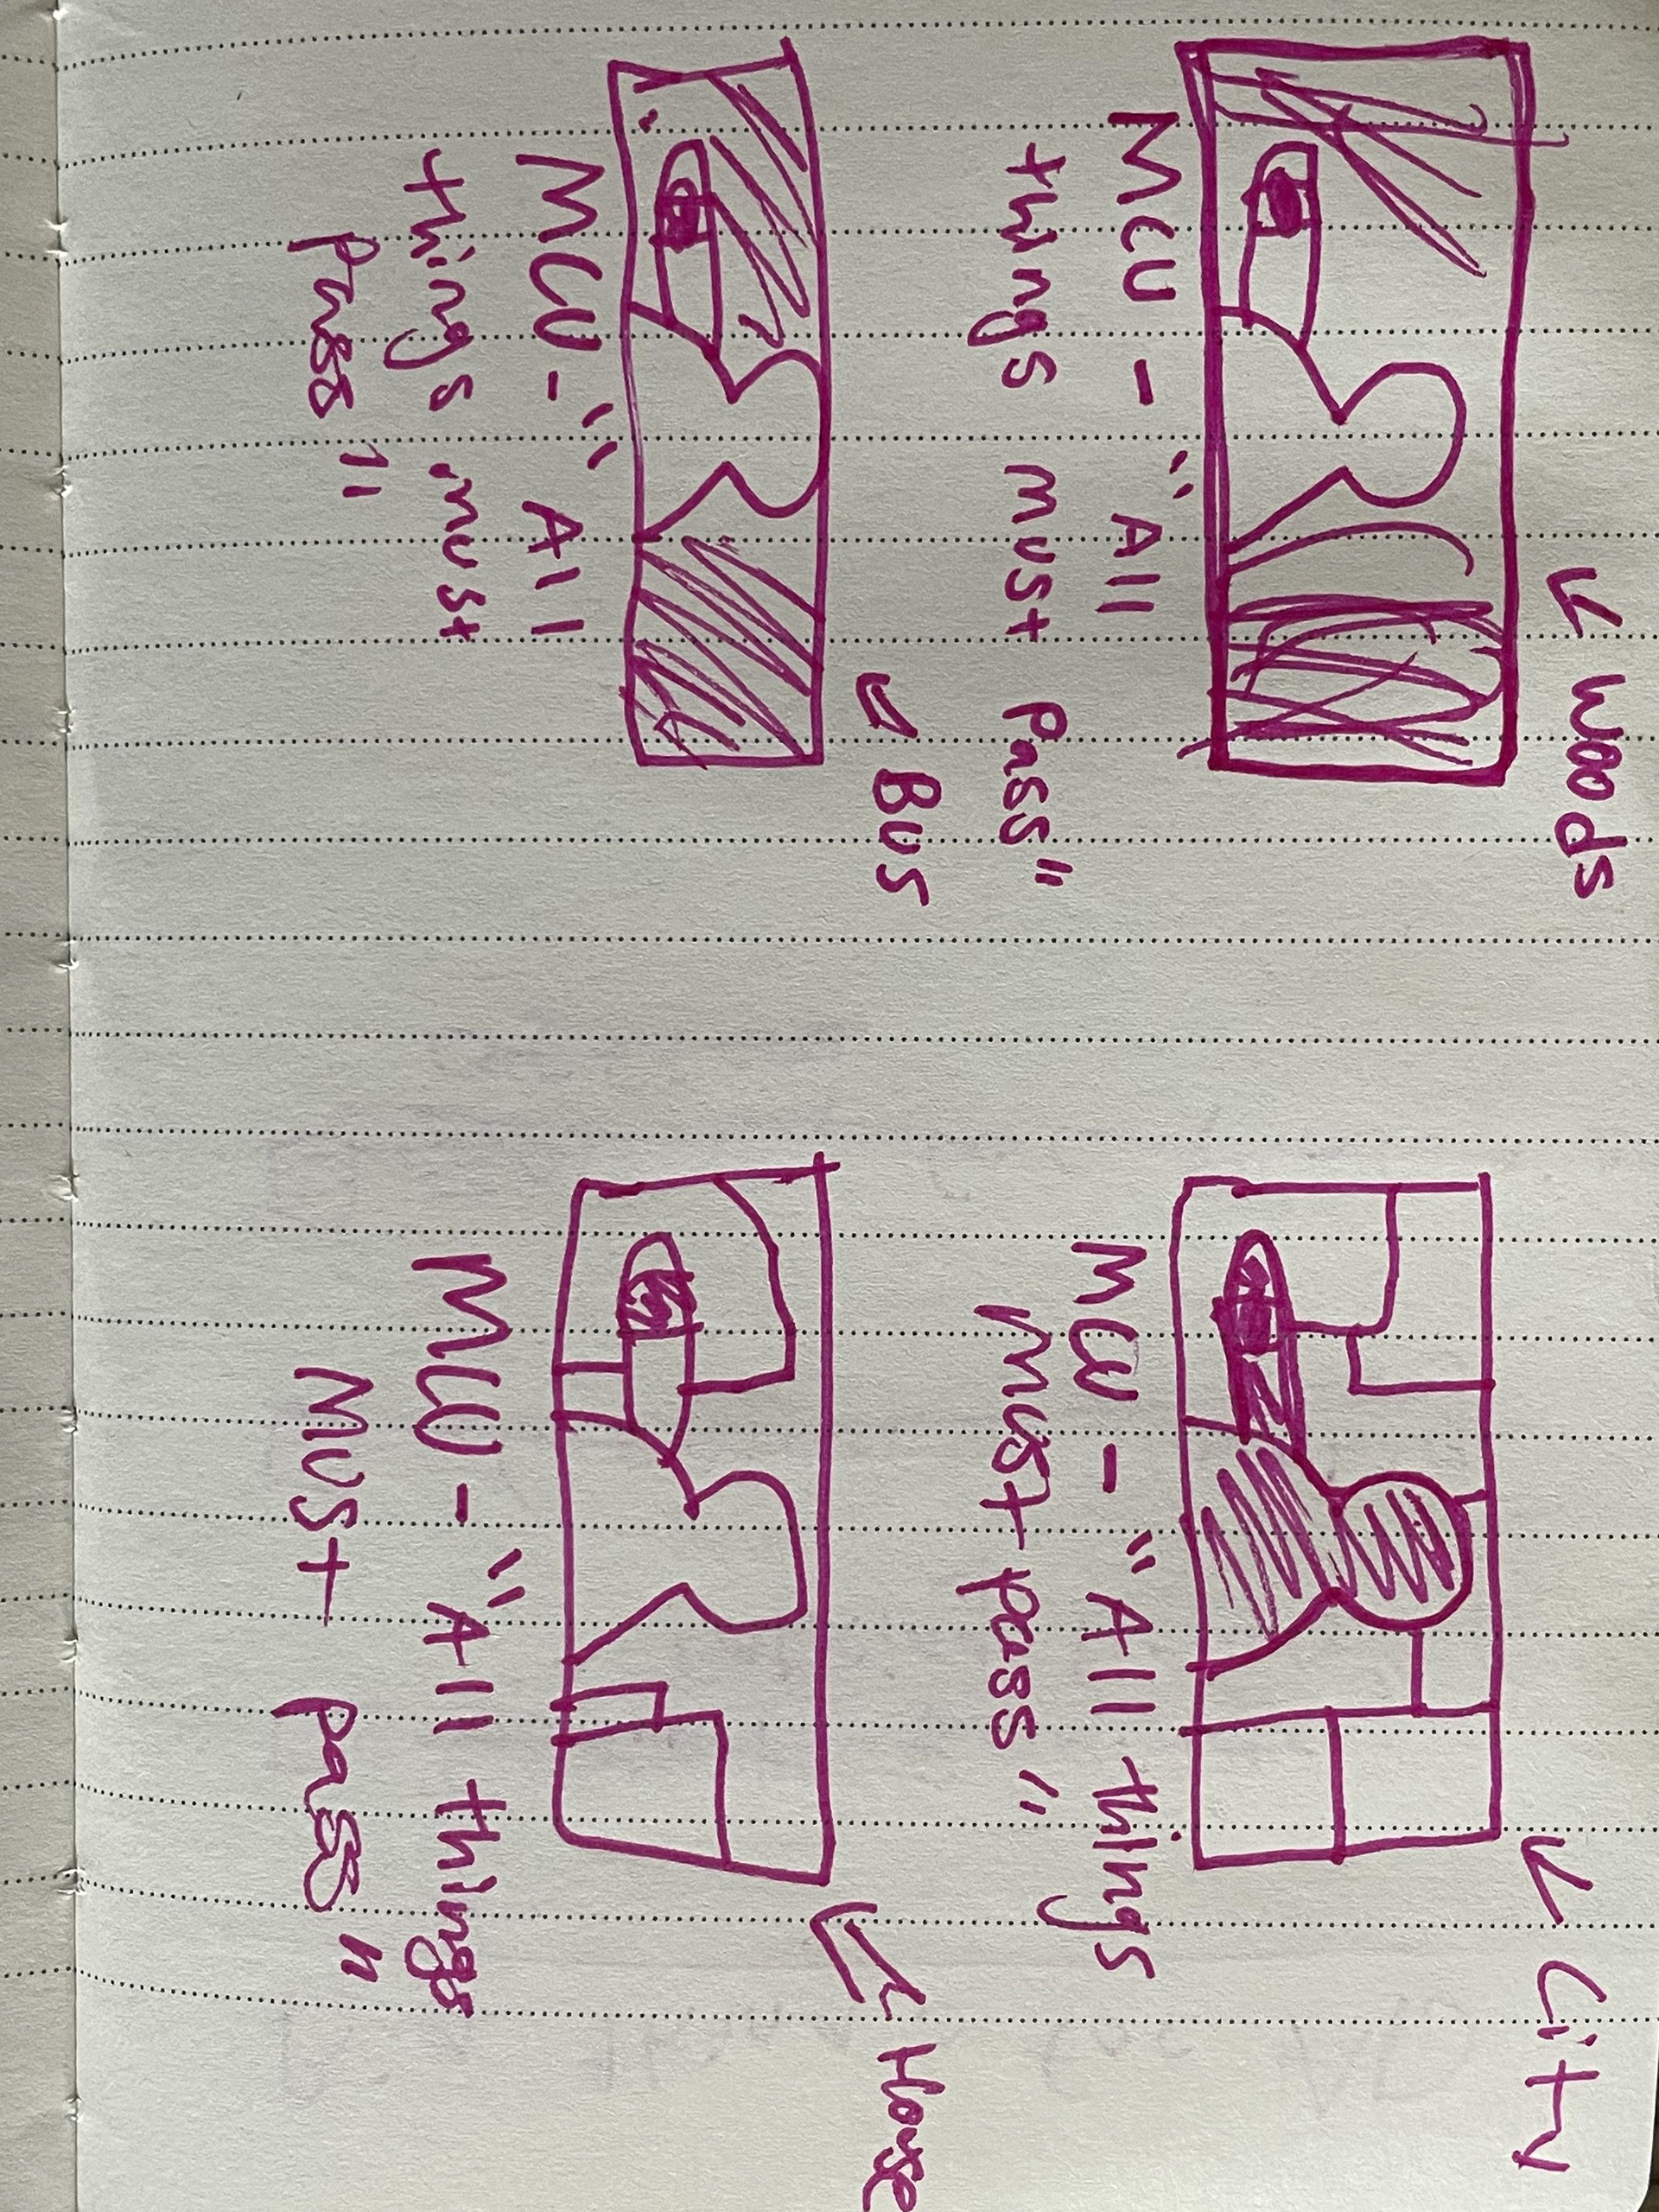 Woods
MCU - "All
things must pass"
City
MCU - "All things
must pass"
Bus
MCU - "All
things must
Pass"
House
MCU - "All things
must pass"